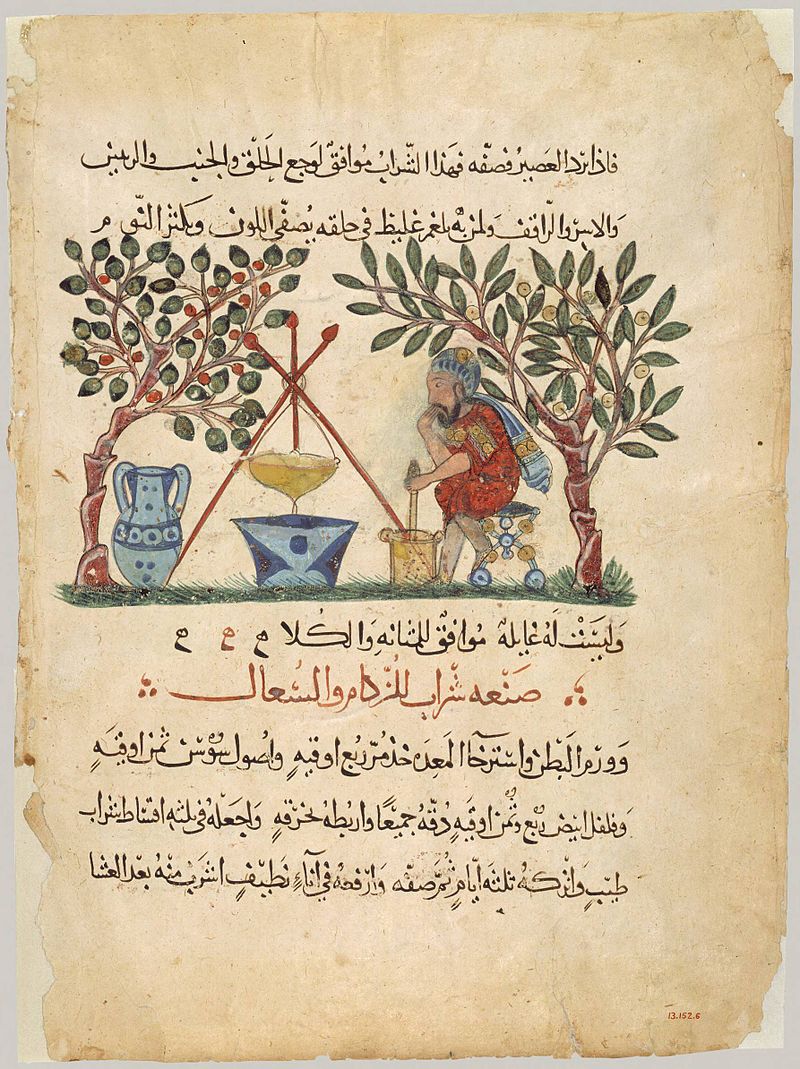 فاذا برد العصير فصفه فهذا الشراب موافق لوجع الحلق والجنب والرئتين
والاسر والراقف ولمن به بلغم غليظ في حلقه يصفي اللون ويكثر النوم
وليست له غايلة موافق للمثانه والكلا
صنعه شراب للزكام والسعال
وورم البطن واسترخا المعده خذ مر ربع اوقيه واصول سوس ثمن اوقيه
وفلفل ابيض ربع وثمن اوقيه دقه جميعا واربطه بخرقه واجعله في ثلثه اقساط شراب
طيب واتركه ثلثه ايام ثم صفه وارفعه في اناء نظيف اشرب منه بعد العشا
13.152.6